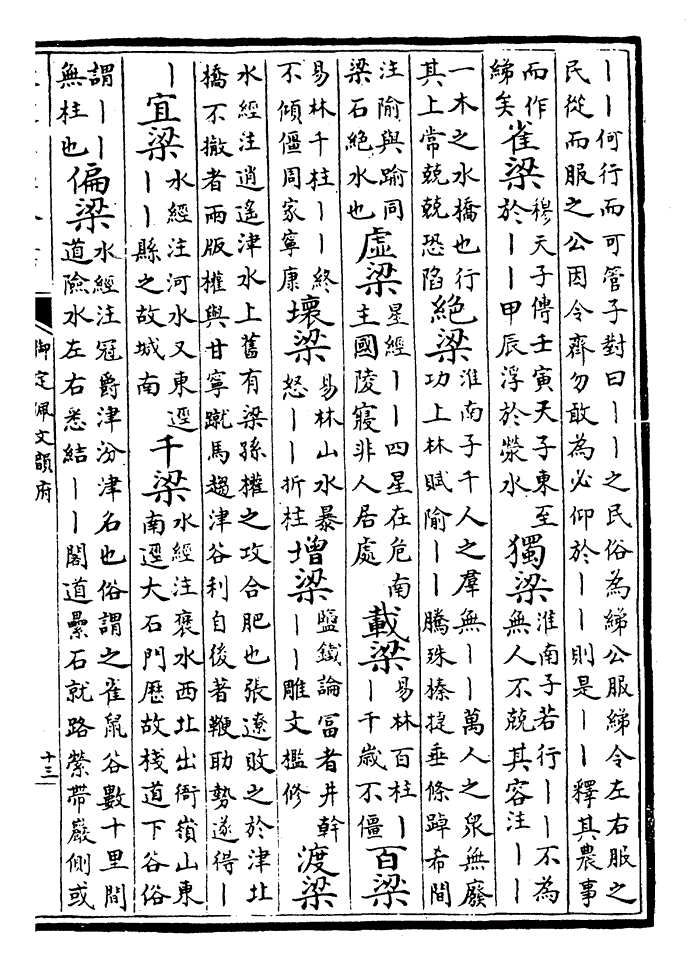 丨丨何行而可管子對曰丨丨之民俗為綈公服綈令左右服之
民從而服之公因令齊勿敢為必仰於丨丨則是丨丨釋其農事
而作
綈矣
雀梁
穆天子傳壬寅天子東至
於丨丨甲辰浮於滎水
獨梁
淮南子若行丨丨不為
無人不兢其容注丨丨
一木之水橋也行
其上常兢兢恐陷
絶梁
淮南子千人之羣無丨丨萬人之衆無廢
功上林賦隃丨丨騰珠榛捷垂條踔希間
注隃與踰同
梁石絶水也
虛梁
星經丨丨四星在危南
主國陵寢非人居處
載梁
易林百柱丨
丨千歲不僵
百梁
易林千柱丨丨終
不傾僵周家寧康
壞梁
易林山水暴
怒丨丨折柱
增梁
鹽鐵論富者井幹
丨丨雕文檻修
渡梁
水經注逍遙津水上舊有梁孫權之攻合肥也張遼敗之於津北
橋不撤者兩版權與甘寧蹴馬趨津谷利自後著鞭助勢遂得丨
丨
宜梁
水經注河水又東逕
丨丨縣之故城南
千梁
水經注褒水西北出衙嶺山東
南逕大石門歷故棧道下谷俗
謂丨丨
無柱也
偏梁
水經注冠爵津汾津名也俗謂之雀鼠谷數十里間
道險水左右悉結丨丨閣道壘石就路縈帶巖側或
御定佩文韻府
十三